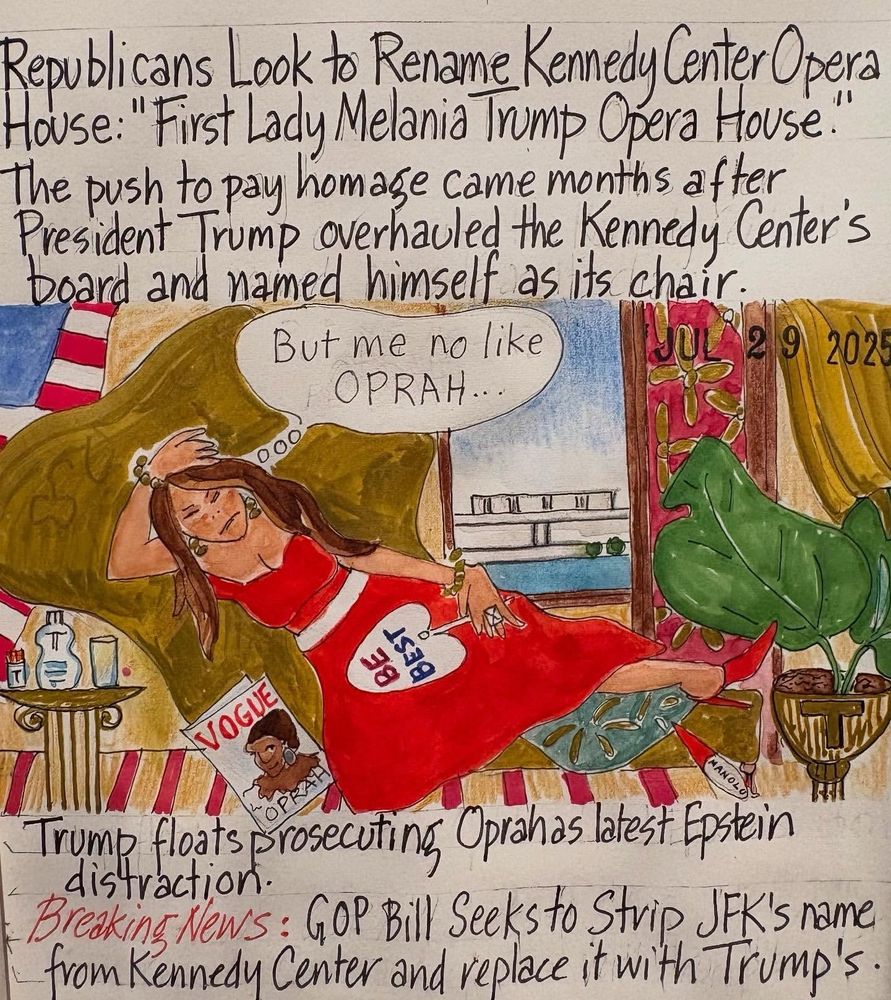 Republicans Look to Rename Kennedy Center Opera
House: "First Lady Melania Trump Opera House."
The push to pay homage came months after
President Trump overhauled the Kennedy Center's
board and named himself as its chair.
But me no like
OPRAH...
JUL 29 2025
BE
BEST
T
T
VOGUE
OPRAH
T
MANOLO
Trump floats prosecuting Oprah as latest Epstein
distraction.
Breaking News: GOP Bill Seeks to Strip JFK's name
from Kennedy Center and replace it with Trump's.